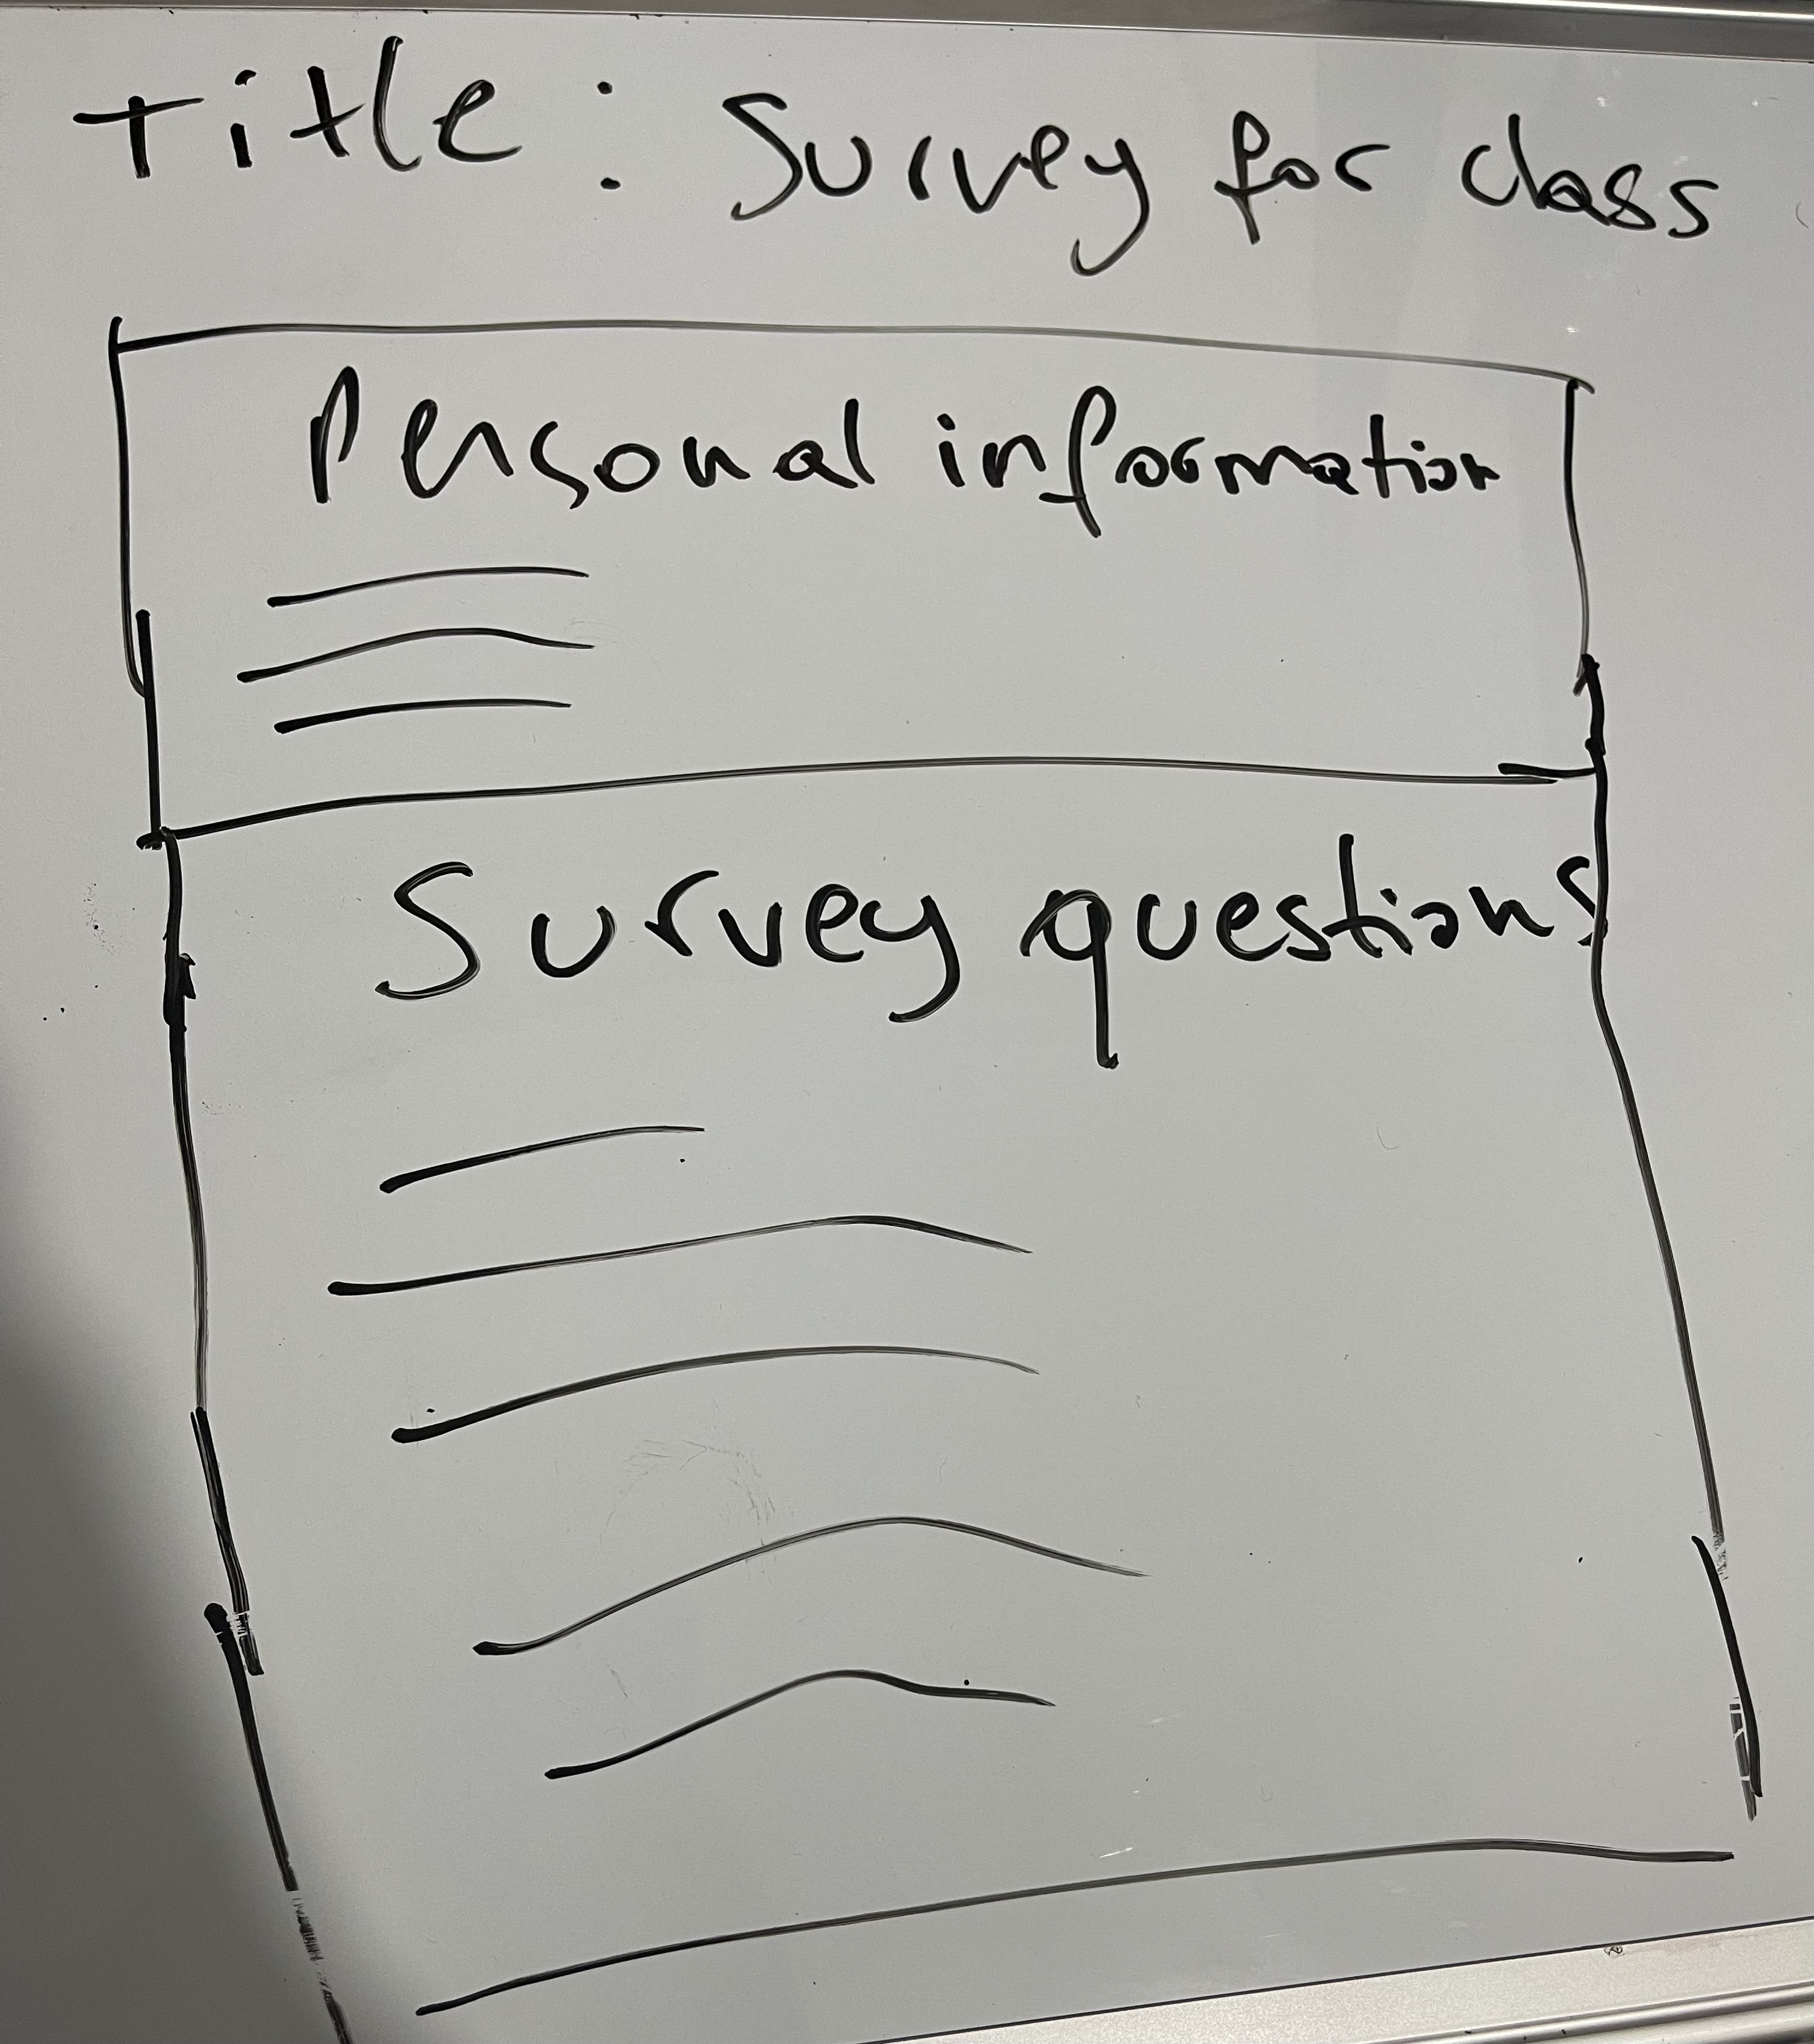 Title: Survey for class
Personal information
Survey questions